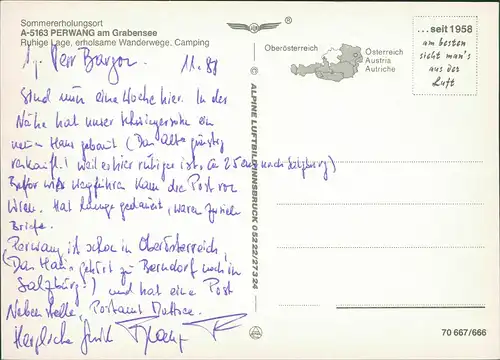 Sommererholungsort
A-5163 PERWANG am Grabensee
Ruhige Lage, erholsame Wanderwege, Camping
Herr 11. 88
Sind nun eine Woche hier. In der
Nähe hat unser Schwiegersohn ein
neues Haus gebaut (Das alte günstig
verkauft! weil es hier ruhiger ist, ca 25 km nach Salzburg)
wir wegfuhren kam die Post von
Wien. Hat lange gedauert, waren zwei
Briefe.
Perwang ist schon in Oberösterreich,
(Das Haus gehört zu Berndorf noch in
Salzburg!) und hat eine Post
Nebenstelle, Postamt Mattsee.
Herzliche Grüße
®
© ALPINE LUFTBILD INNSBRUCK 05222/27324
Oberösterreich
Österreich
Austria
Autriche
...seit 1958
am besten
sieht man's
aus der
Luft
70 667/666